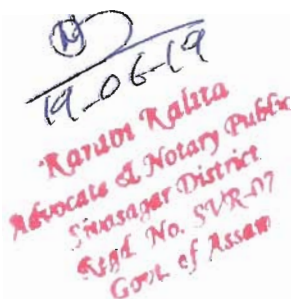 19-06-19
Kalita
Advocate & Notary Public
Sivasagar District
Regd. No. SVR-07
Govt. of Assam